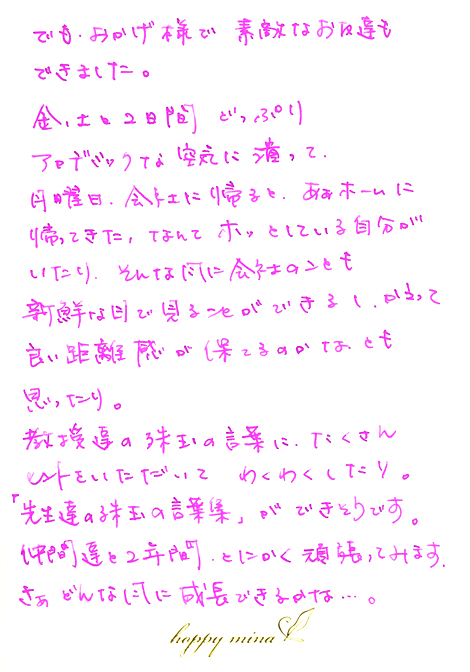 でも、おかげ様で 素敵なお友達も
できました。
金、土と2日間 どっぷり
アカデミックな空気に漬って、
月曜日、会社に帰ると、ああホームに
帰ってきた、なんて ホッとしている自分が
いたり、そんな風に会社のことも
新鮮な目で見ることができるし、かえって
良い距離感が保てるのかな、とも
思ったり。
教授達の珠玉の言葉に、たくさん
ヒントをいただいて わくわくしたり。
「先生達の珠玉の言葉集」ができそうです。
仲間達と2年間、とにかく頑張ってみます。
さぁ どんな風に成長できるかな…。
happy mina